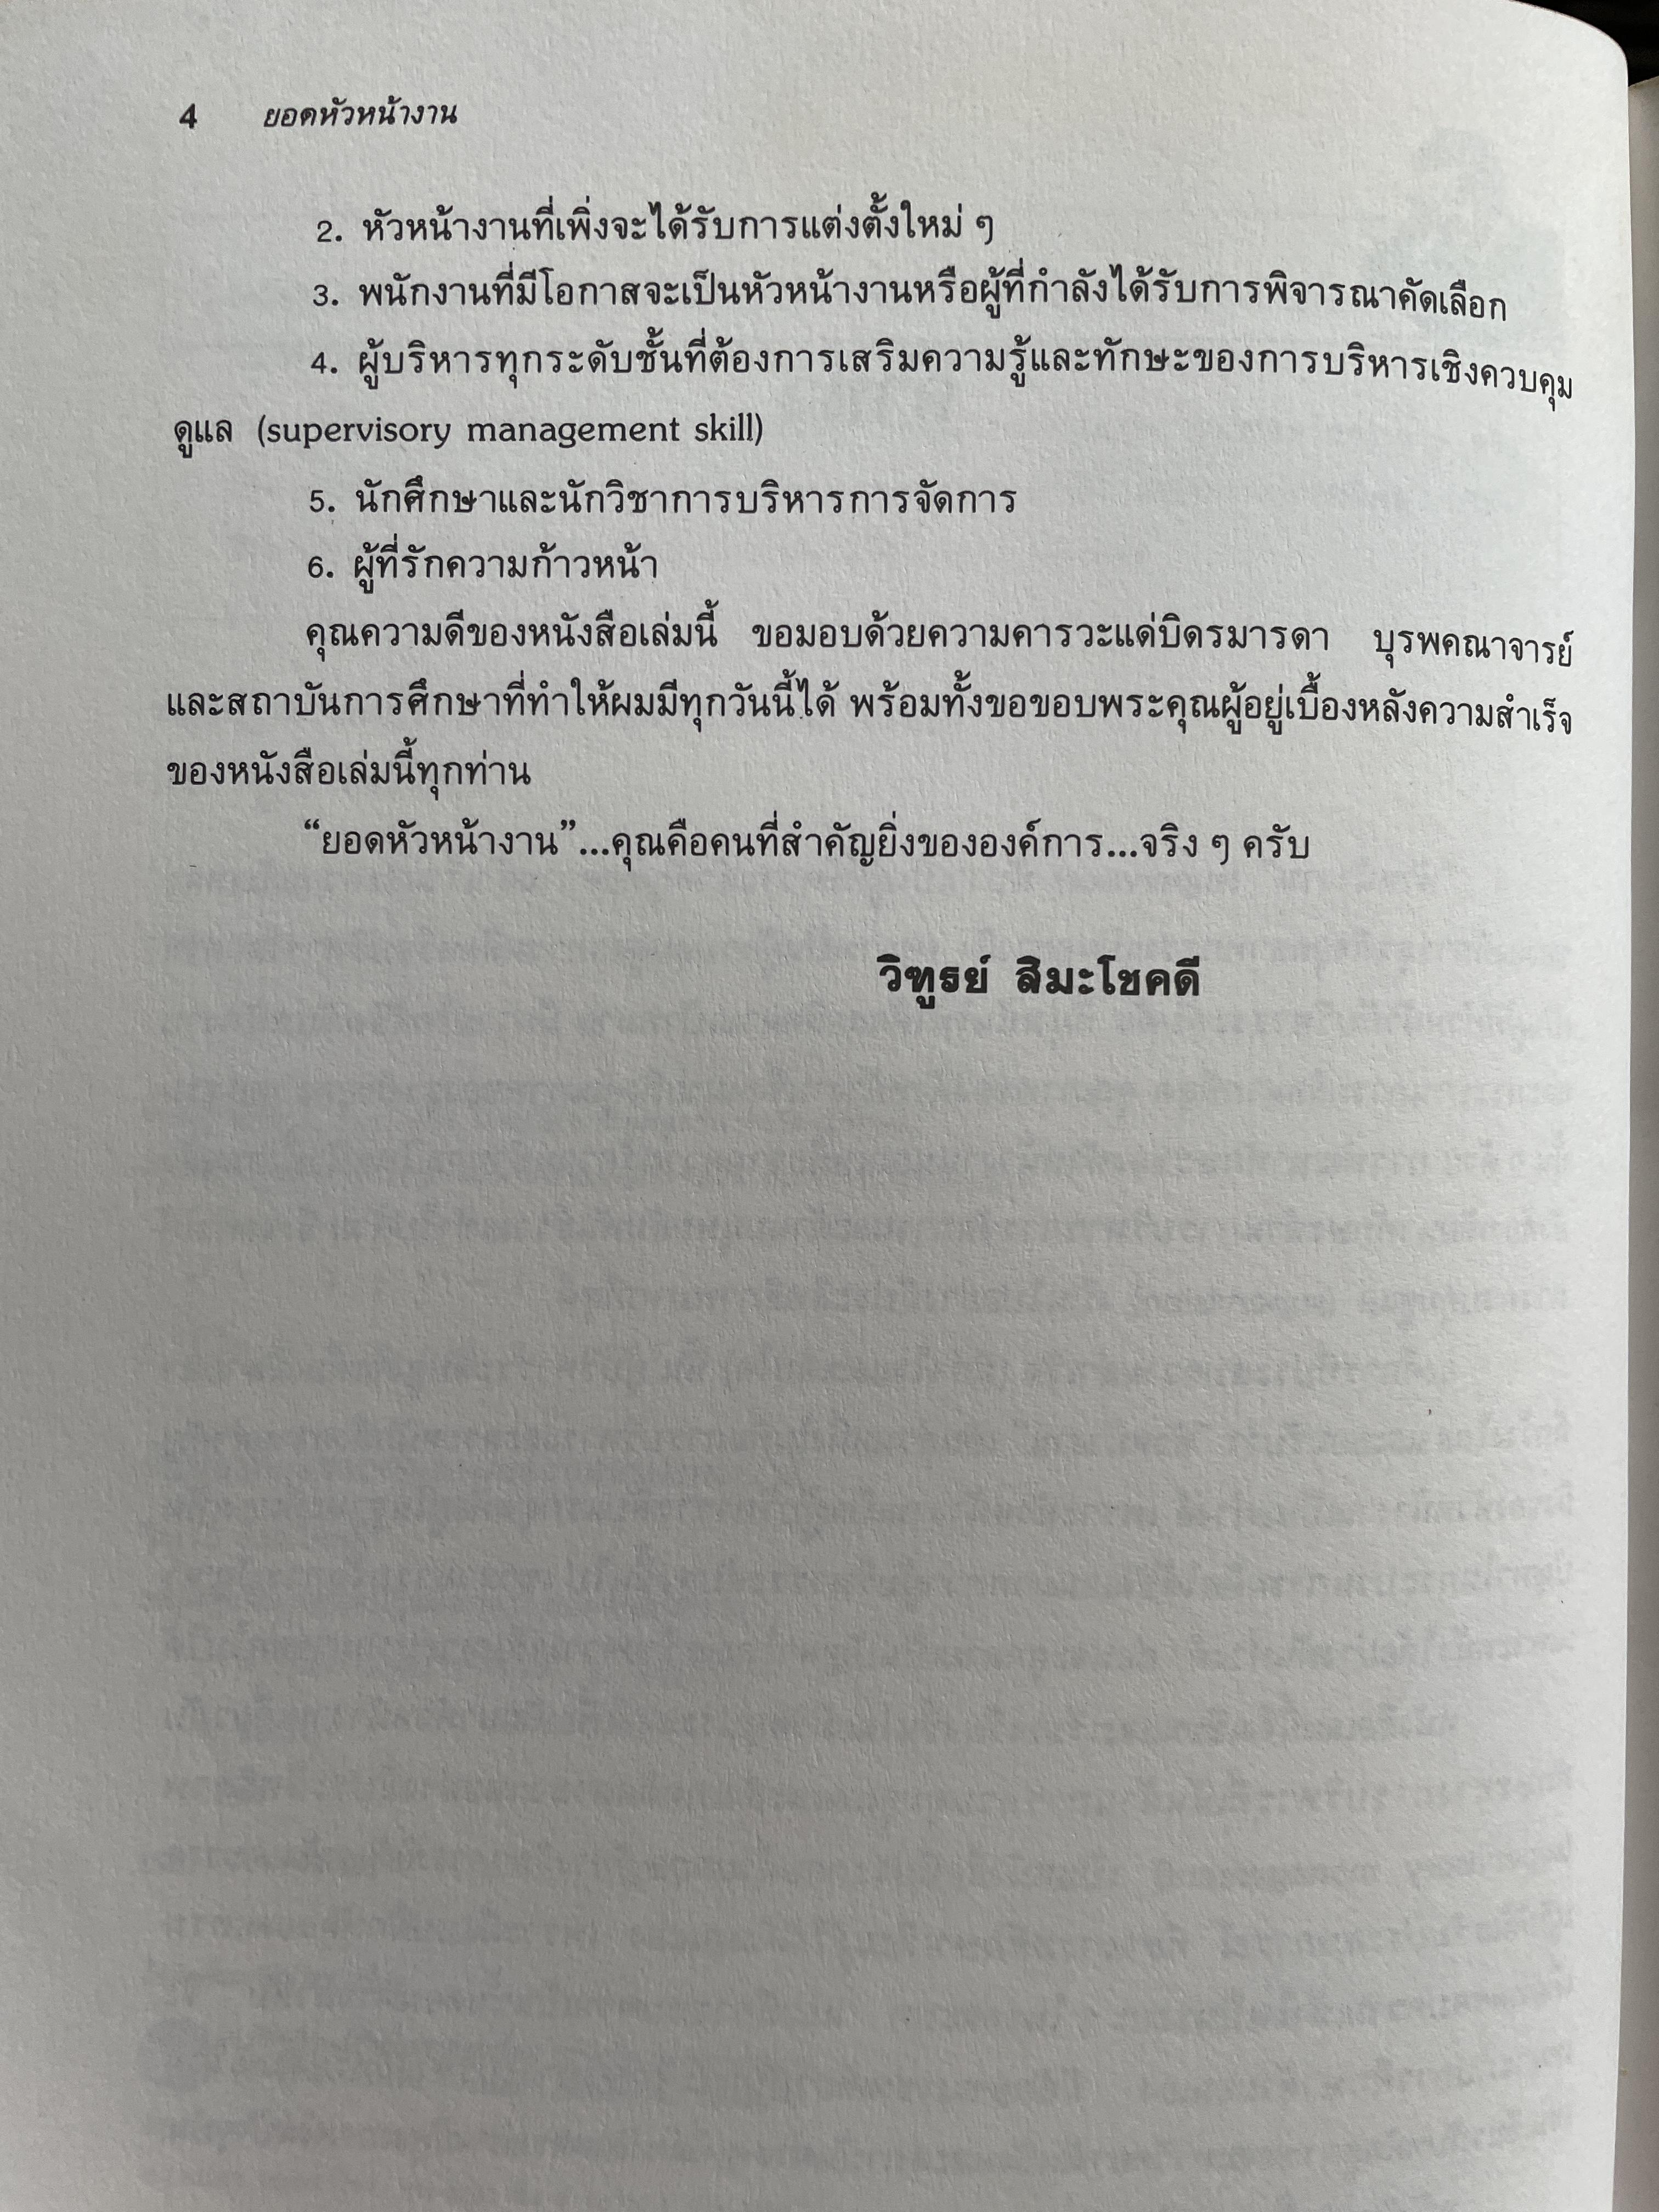 4 ยอดหัวหน้างาน
2. หัวหน้างานที่เพิ่งจะได้รับการแต่งตั้งใหม่ ๆ
3. พนักงานที่มีโอกาสจะเป็นหัวหน้างานหรือผู้ที่กำลังได้รับการพิจารณาคัดเลือก
4. ผู้บริหารทุกระดับชั้นที่ต้องการเสริมความรู้และทักษะของการบริหารเชิงควบคุม
ดูแล (supervisory management skill)
5. นักศึกษาและนักวิชาการบริหารการจัดการ
6. ผู้ที่รักความก้าวหน้า
คุณความดีของหนังสือเล่มนี้ ขอมอบด้วยความคารวะแด่บิดรมารดา บุรพคณาจารย์
และสถาบันการศึกษาที่ทำให้ผมมีทุกวันนี้ได้ พร้อมทั้งขอขอบพระคุณผู้อยู่เบื้องหลังความสำเร็จ
ของหนังสือเล่มนี้ทุกท่าน
“ยอดหัวหน้างาน”...คุณคือคนที่สำคัญยิ่งขององค์การ...จริง ๆ ครับ
วิฑูรย์ สิมะโชคดี